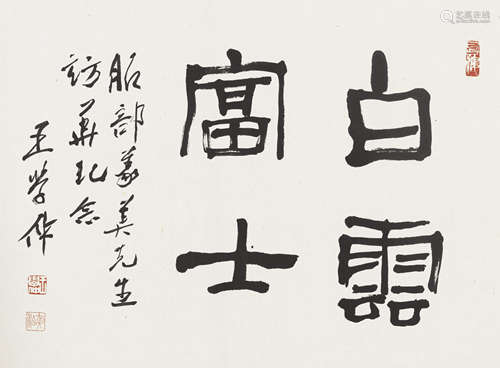 白雲
富士
服部義美先生
訪華紀念
王學仲